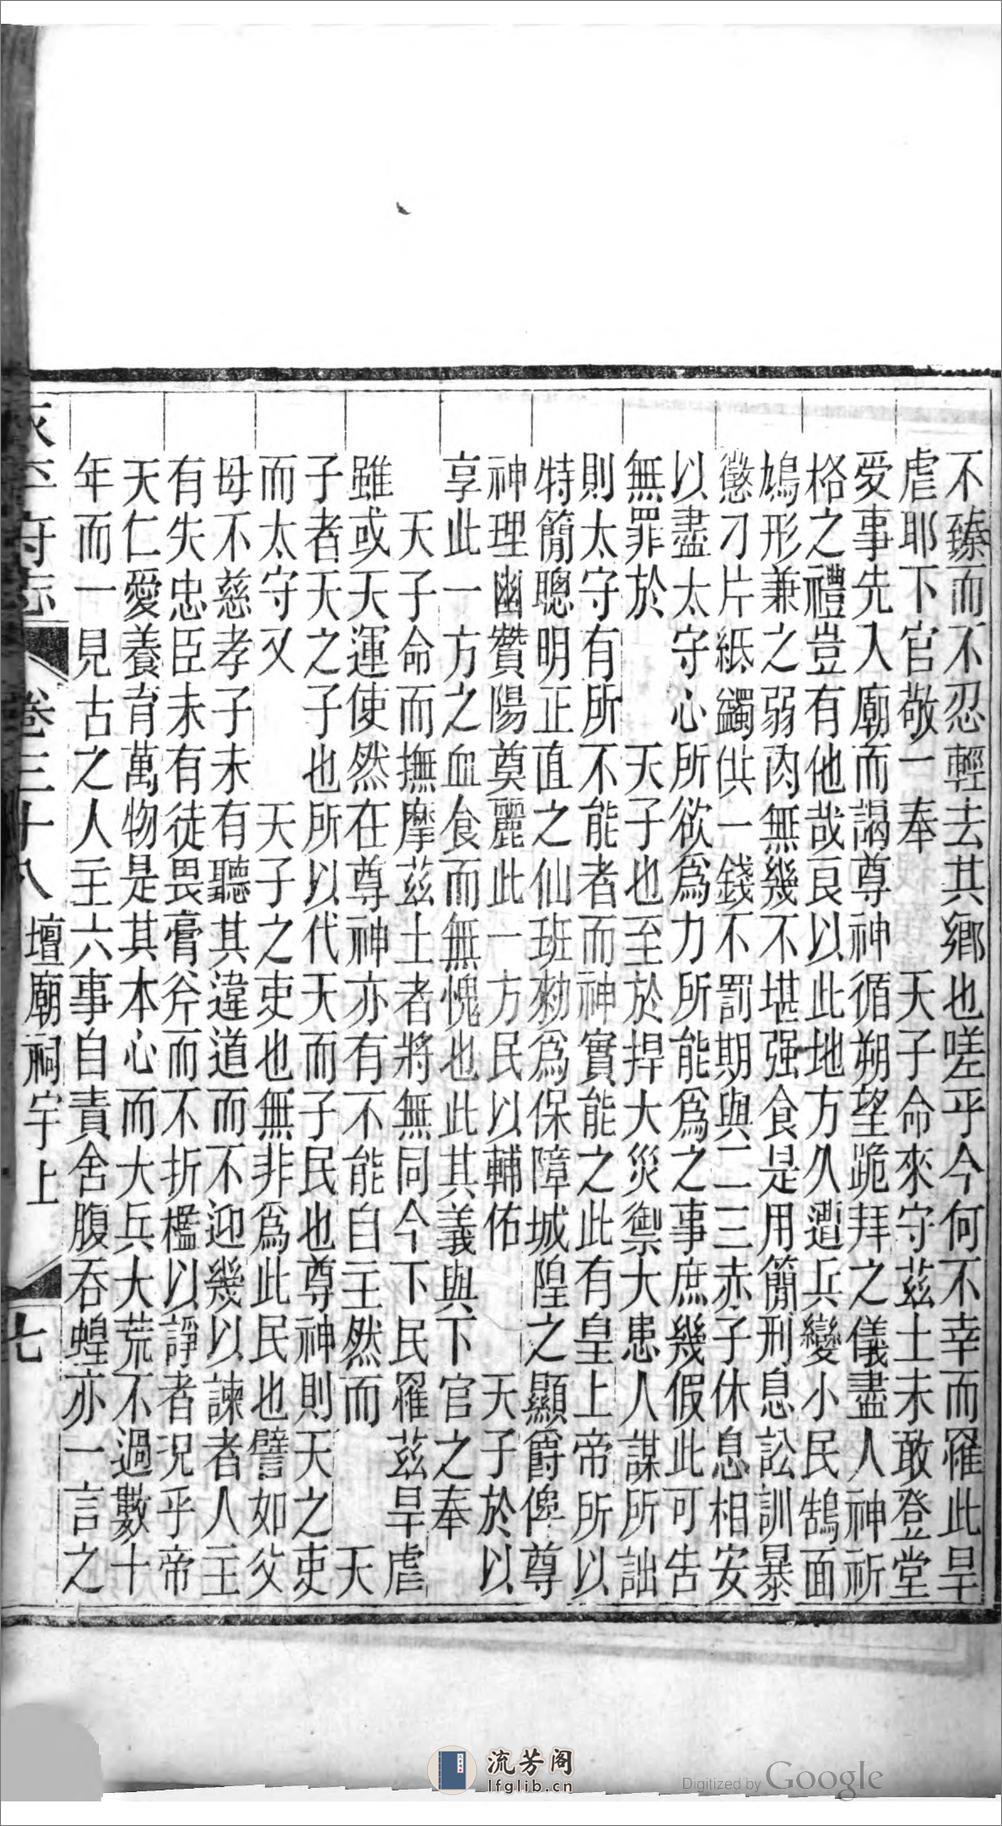 不臻而不忍輕去其鄉也嗟乎今何不幸而罹此旱
虐耶下官敬一奉　天子命來守茲土未敢登堂
愛事先入廟而謁尊神循朔望跪拜之儀盡人神祈
格之禮豈有他哉良以此地方久遭兵變小民鵠面
鳩形兼之弱肉無幾不堪强食是用簡刑息訟訓暴
懲刁片紙蠲供一錢不罰期與二三赤子休息相安
以盡太守心所欲爲力所能爲之事庶幾假此可告
無罪於　天子也至於捍大災禦大患人謀所詘
則太守有所不能者而神實能之此有皇上帝所以
特簡聰明正直之仙班勑爲保障城隍之顯爵俾尊
神理幽贊陽奠麗此一方民以輔佑　天子於以
享此一方之血食而無愧也此其義與下官之奉
天子命而撫摩茲土者將無同今下民罹茲旱虐
雖或天運使然在尊神亦有不能自主然而　天
子者天之子也所以代天而子民也尊神則天之吏
而太守又　天子之吏也無非爲此民也譬如父
母不慈孝子未有聽其違道而不迎幾以諫者人主
有失忠臣未有徒畏膏斧而不折檻以諍者況乎帝
天仁愛養育萬物是其本心而大兵大荒不過數十
年而一見古之人主六事自責舍腹吞蝗亦一言之
府志　卷三十八　壇廟祠宇上　七
流芳阁
lfglib.cn
Digitized by Google